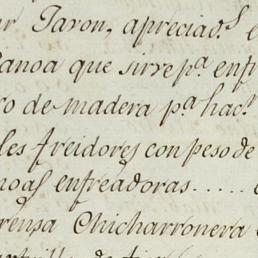 Javon, apreciad.ˢ
Canoa que sirve p.ª enfr
ro de madera p.ª hac.ʳ
les freidores con peso de
noas enfreadoras.....
rensa Chicharronera